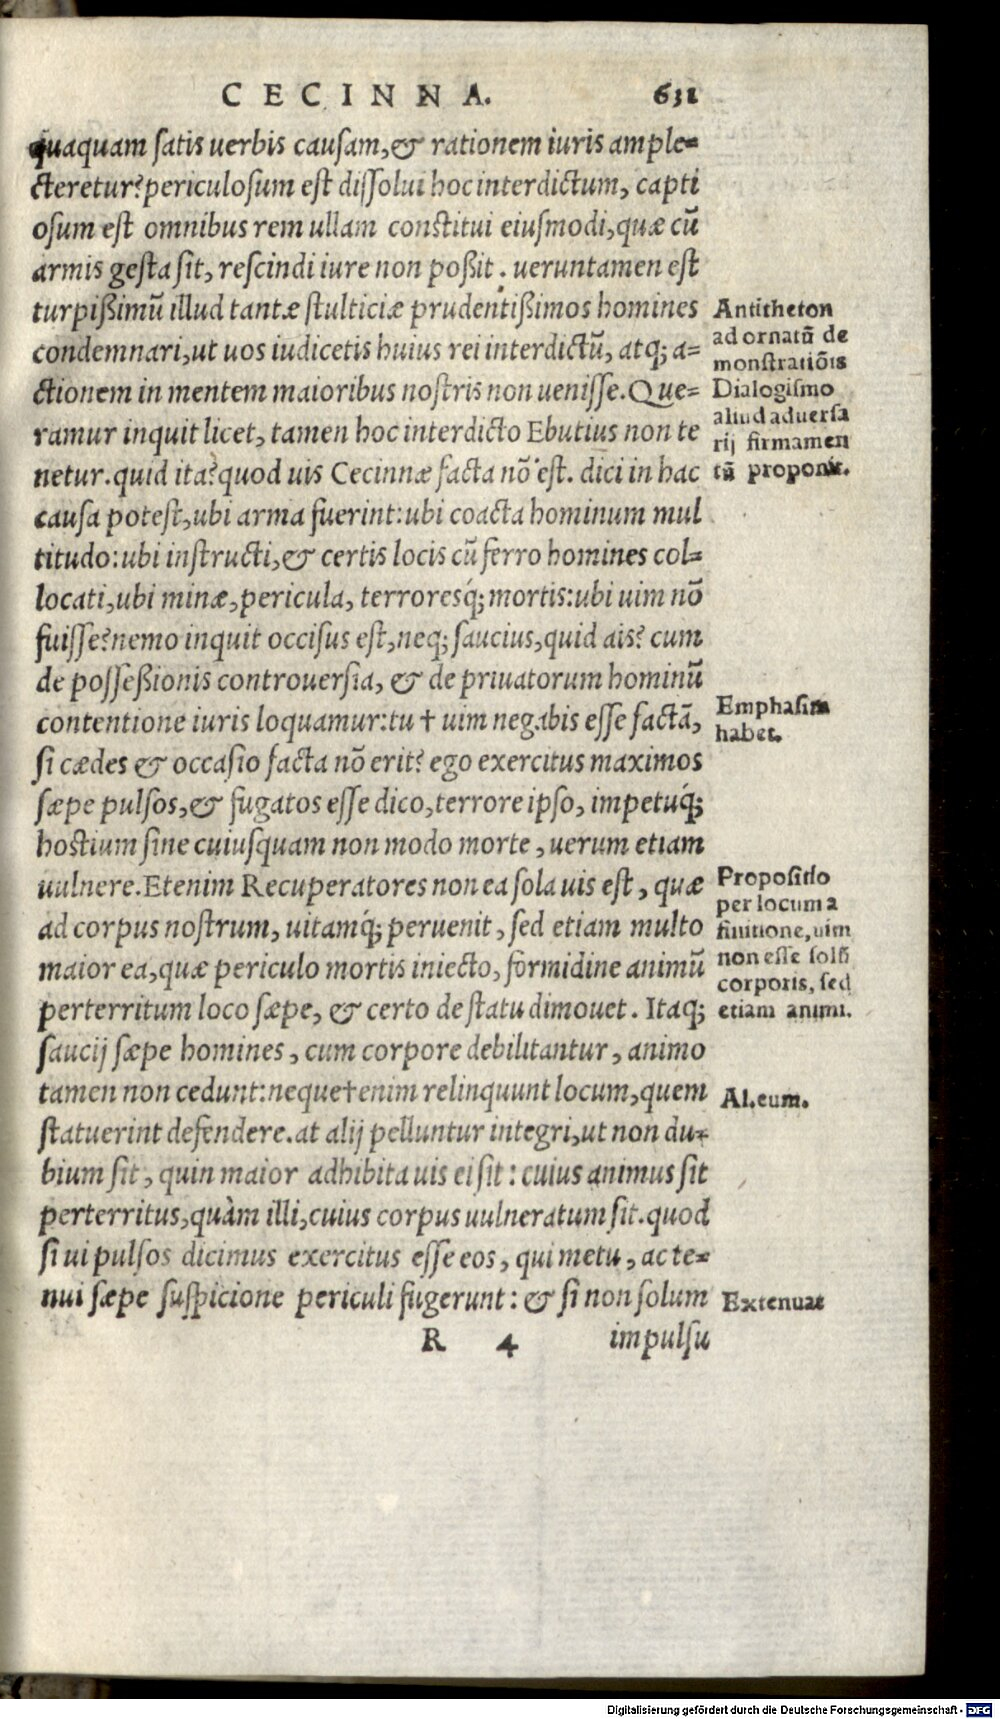 CECINNA. 631
quaquam satis uerbis causam, & rationem iuris ample=
cteretur? periculosum est dissolui hoc interdictum, capti
osum est omnibus rem ullam constitui eiusmodi, quæ cū
armis gesta sit, rescindi iure non poßit. ueruntamen est
turpißimū illud tantæ stulticiæ prudentißimos homines
condemnari, ut uos iudicetis huius rei interdictū, atq; a=
ctionem in mentem maioribus nostris non uenisse. Que=
ramur inquit licet, tamen hoc interdicto Ebutius non te
netur. quid ita? quod uis Cecinnæ facta nō est. dici in hac
causa potest, ubi arma fuerint: ubi coacta hominum mul
titudo: ubi instructi, & certis locis cū ferro homines col=
locati, ubi minæ, pericula, terroresq́; mortis: ubi uim nō
fuisse? nemo inquit occisus est, neq; saucius, quid ais? cum
de posseßionis controuersia, & de priuatorum hominū
contentione iuris loquamur: tu † uim negabis esse factā,
si cædes & occasio facta nō erit? ego exercitus maximos
sæpe pulsos, & fugatos esse dico, terrore ipso, impetuq́;
hostium sine cuiusquam non modo morte, uerum etiam
uulnere. Etenim Recuperatores non ea sola uis est, quæ
ad corpus nostrum, uitamq́; peruenit, sed etiam multo
maior ea, quæ periculo mortis iniecto, formidine animū
perterritum loco sæpe, & certo de statu dimouet. Itaq;
saucij sæpe homines, cum corpore debilitantur, animo
tamen non cedunt: neque † enim relinquunt locum, quem
statuerint defendere. at alij pelluntur integri, ut non du=
bium sit, quin maior adhibita uis ei sit: cuius animus sit
perterritus, quàm illi, cuius corpus uulneratum sit. quod
si ui pulsos dicimus exercitus esse eos, qui metu, ac te=
nui sæpe suspicione periculi fugerunt: & si non solum
R 4 impulsu
Antitheton
ad ornatū de
monstratiōis
Dialogismo
aliud aduersa
rij firmamen
tū proponit.
Emphasim
habet.
Propositio
per locum a
finitione, uim
non esse solū
corporis, sed
etiam animi.
Al. eum.
Extenuat
Digitalisierung gefördert durch die Deutsche Forschungsgemeinschaft - DFG